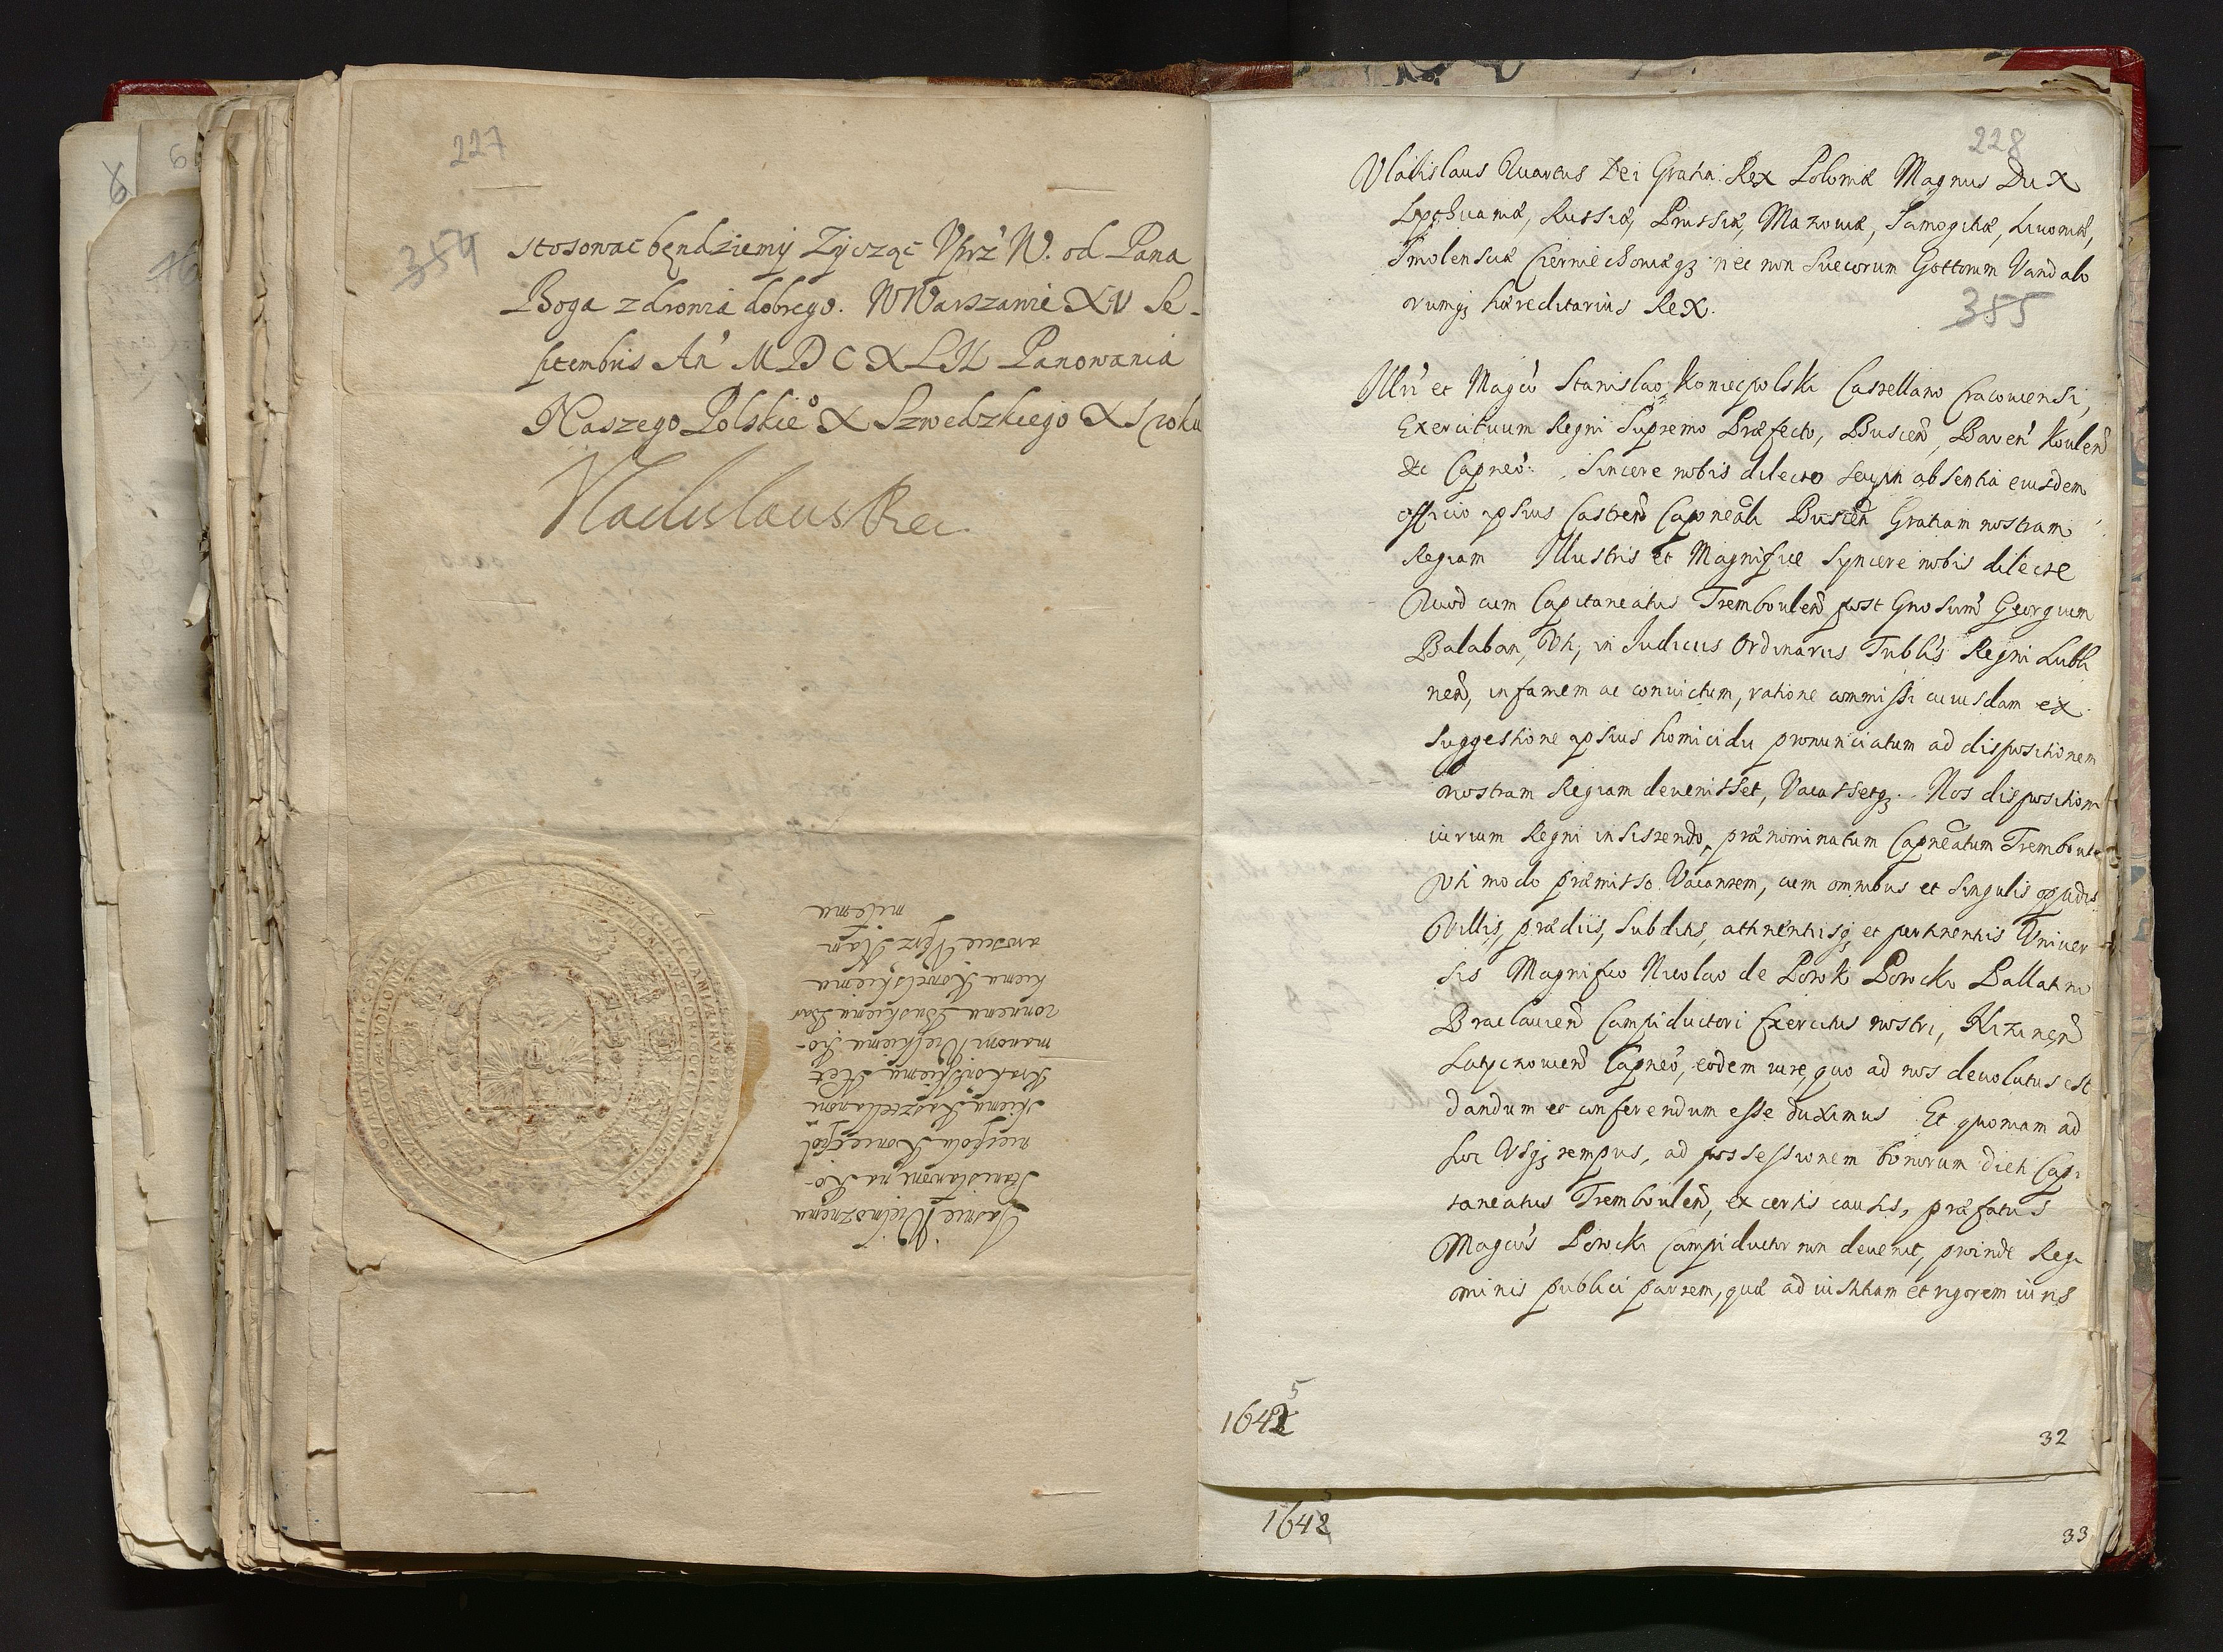 227
354
stosowac bęndziemy Zycząc Vprz W. od Pana
Boga zdrowia dobrego. W Warszawie XV Se-
ptembris An' MDCXLII Panowania
Naszego Polskieo X Szwedzkiego XI roku
Vladislaus Rex
Jasnie Wielmoznemu
Stanisławowi na Ko-
niecpolu Koniecpol
skiemu Kasztellanowi
Krakowskiemu Het
manowi Wielkiemu Ko-
ronnemu Buskiemu Bar
skiemu Kowelskiemu
aroscie Vprz Nam
miłemu
228
355
Vladislaus Quartus Dei Gratia Rex Poloniæ Magnus Dux
Lithuaniæ, Russiæ, Prussiæ, Mazouiæ, Samogitiæ, Liuoniæ,
Smolensciæ Czerniechouiæqȝ nec non Suecorum Gottorum Vandalo
rumqȝ hæreditarius Rex.
Illri et Magco Stanislao Koniecpolski Castellano Cracouiensi,
Exercituum Regni Supremo Præfecto, Buscen, Baren Koulen
&c Capneo. Sincere nobis dilecto seu in absentia eiusdem
officio ipsius Castren Capneali Buscen Gratiam nostram
Regiam Illustris et Magnifice Syncere nobis dilecte
Quod cum Capitaneatus Tremboulen post Gnosum Georgium
Balaban, Vti, in Iudiciis Ordinariis Tribtis Regni Lubli
nen, infamem ac conuictum, ratione commissi cuiusdam ex
Suggestione ipsius homicidii pronunciatum ad dispositionem
nostram Regiam deuenisset, Vacassetqȝ. Nos dispositioni
iurium Regni insistendo, prænominatum Capneatum Tremboul
Vti modo præmisso Vacantem, cum omnibus et Singulis oppidis
Villis, prædiis, Subditis, attinentiisqȝ et pertinentiis Vniuer
sis Magnifico Nicolao de Potok Potocki Pallatino
Braclauien Campiductori Exercitus nostri, Nizinen
Latyczouien Capneo, eodem iure, quo ad nos deuolutus est
dandum et conferendum esse duximus Et quoniam ad
hoc Vsqȝ tempus, ad possessionem bonorum dicti Capi
taneatus Tremboulen, ex certis causis, præfatus
Magcus Potocki Campiductor non deuenit, proinde Regi
minis publici partem, quæ ad iustitiam et rigorem iuris
5
1642
32
1642
33